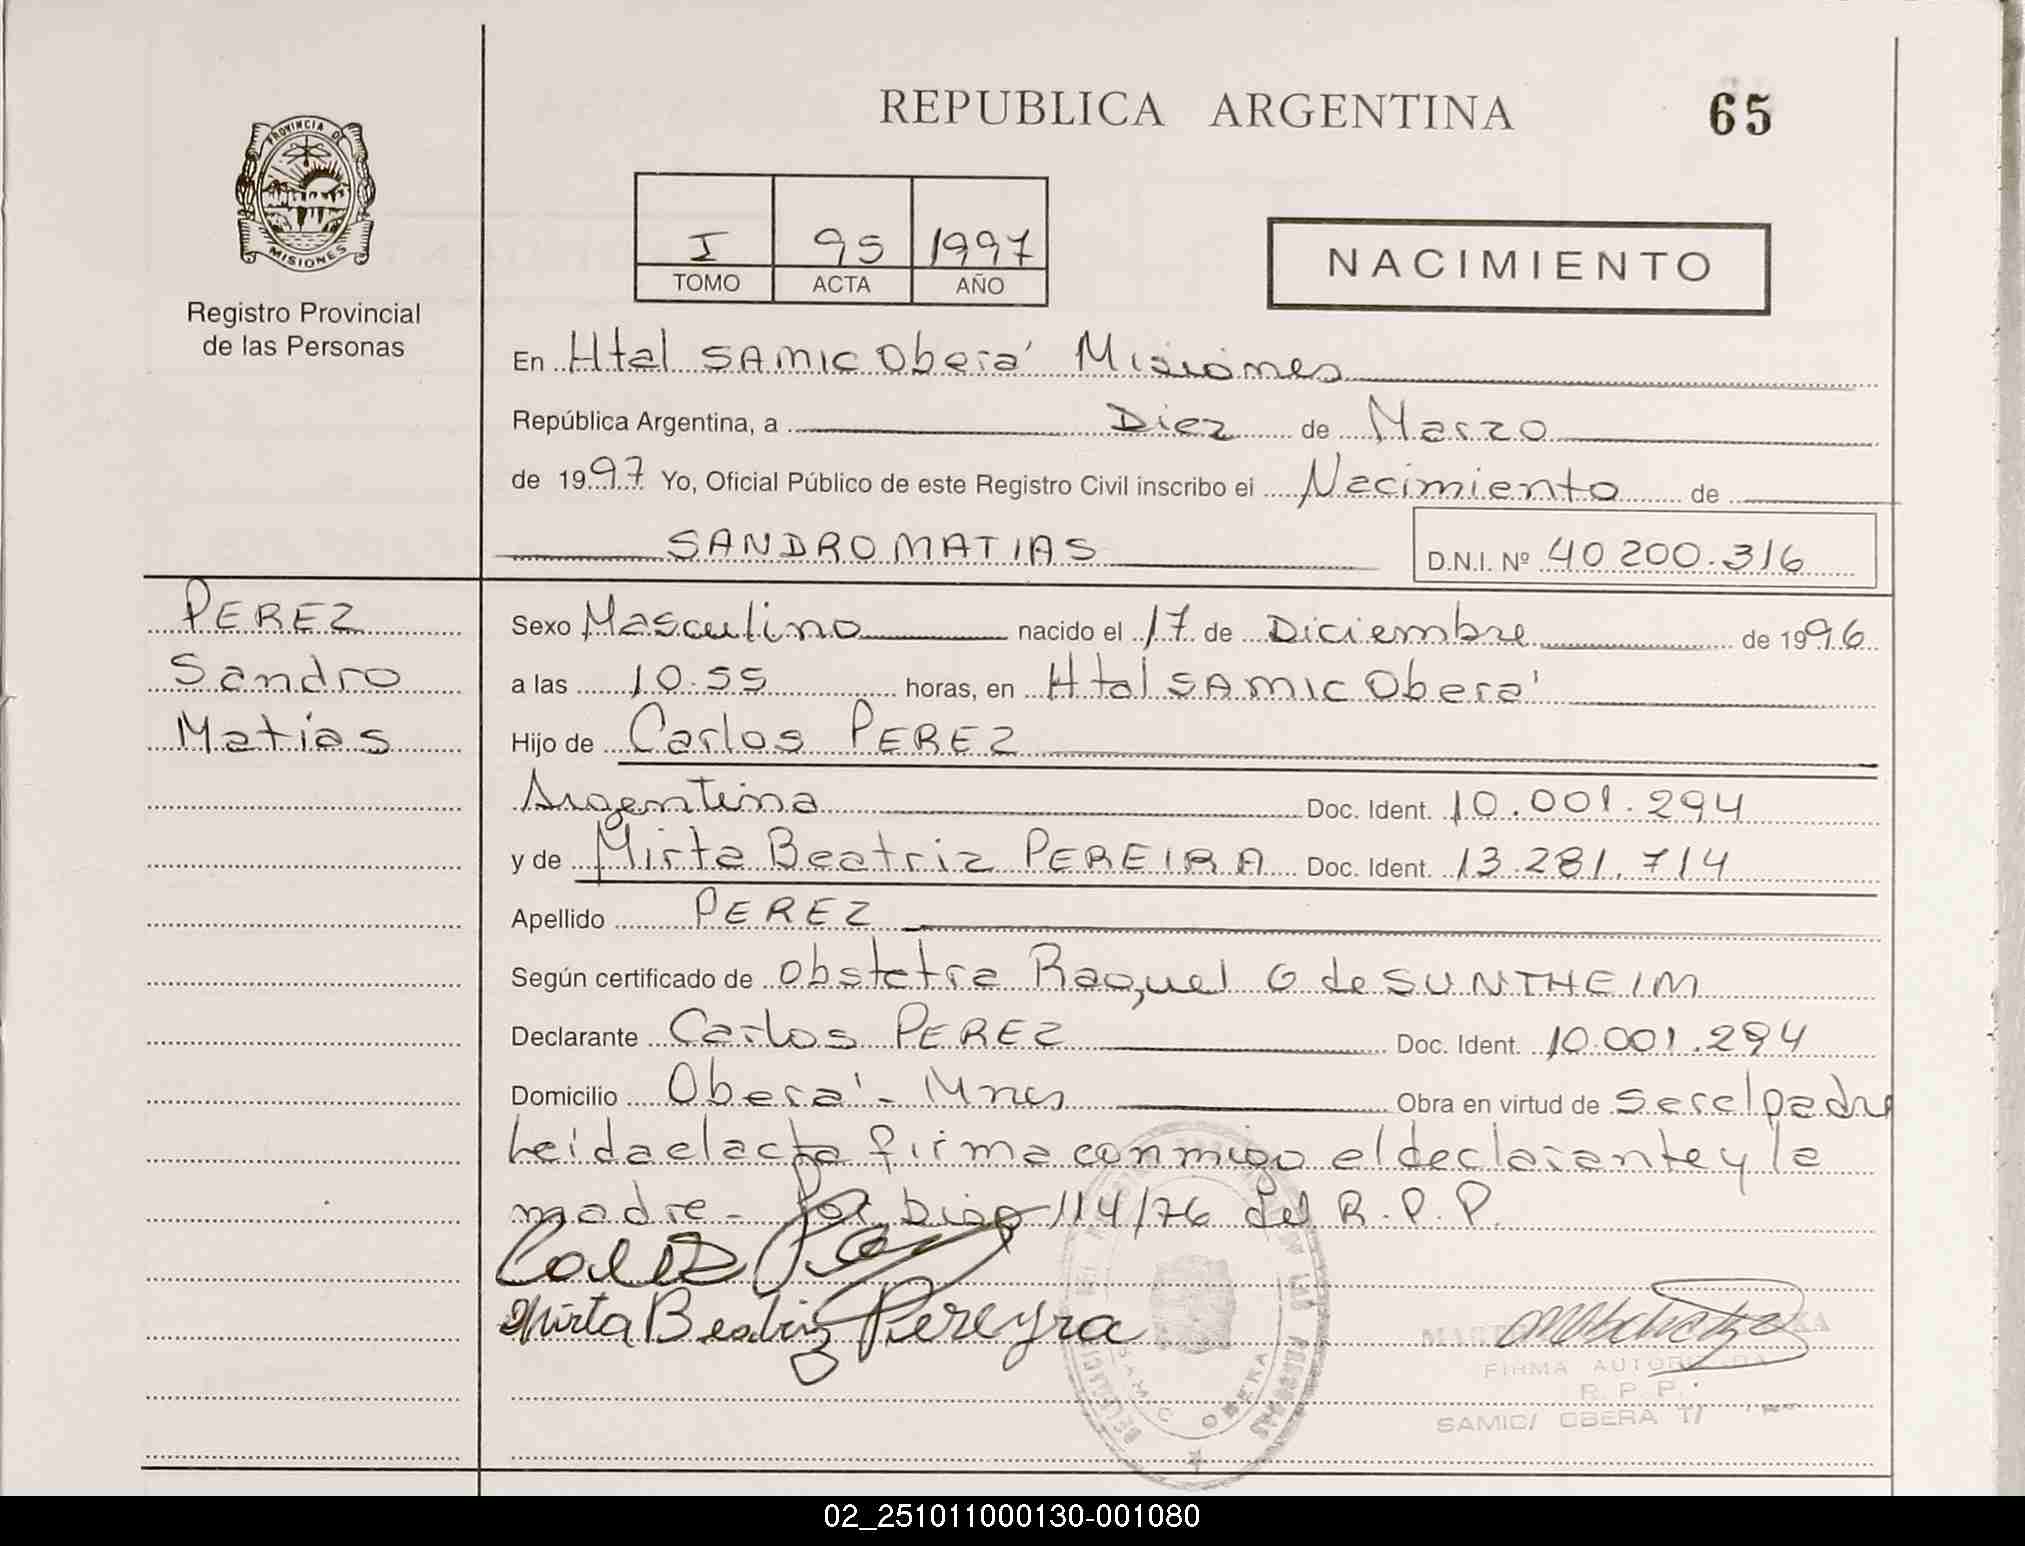 REPUBLICA ARGENTINA
65
PROVINCIA DE
MISIONES
Registro Provincial
de las Personas
I 95 1997
TOMO ACTA AÑO
NACIMIENTO
En Htal SAMIC Oberá Misiones
República Argentina, a Diez de Marzo
de 1997 Yo, Oficial Público de este Registro Civil inscribo el Nacimiento de
SANDRO MATIAS
D.N.I. Nº 40 200.316
PEREZ
Sandro
Matias
Sexo Masculino nacido el 17 de Diciembre de 1996
a las 10.55 horas, en Htal SAMIC Oberá
Hijo de Carlos PEREZ
Argentina Doc. Ident. 10.001.294
y de Mirta Beatriz PEREIRA Doc. Ident. 13.281.714
Apellido PEREZ
Según certificado de Obstetra Raquel G de SUNTHEIM
Declarante Carlos PEREZ Doc. Ident. 10.001.294
Domicilio Oberá - Mnes Obra en virtud de ser el padre
Leida el acta firma conmigo el declarante y la
madre - Por Disp 114/76 del R.P.P.
Mirta Beatriz Pereyra
FIRMA AUTORIZADA
R. P. P.
SAMIC/ OBERA
02_251011000130-001080